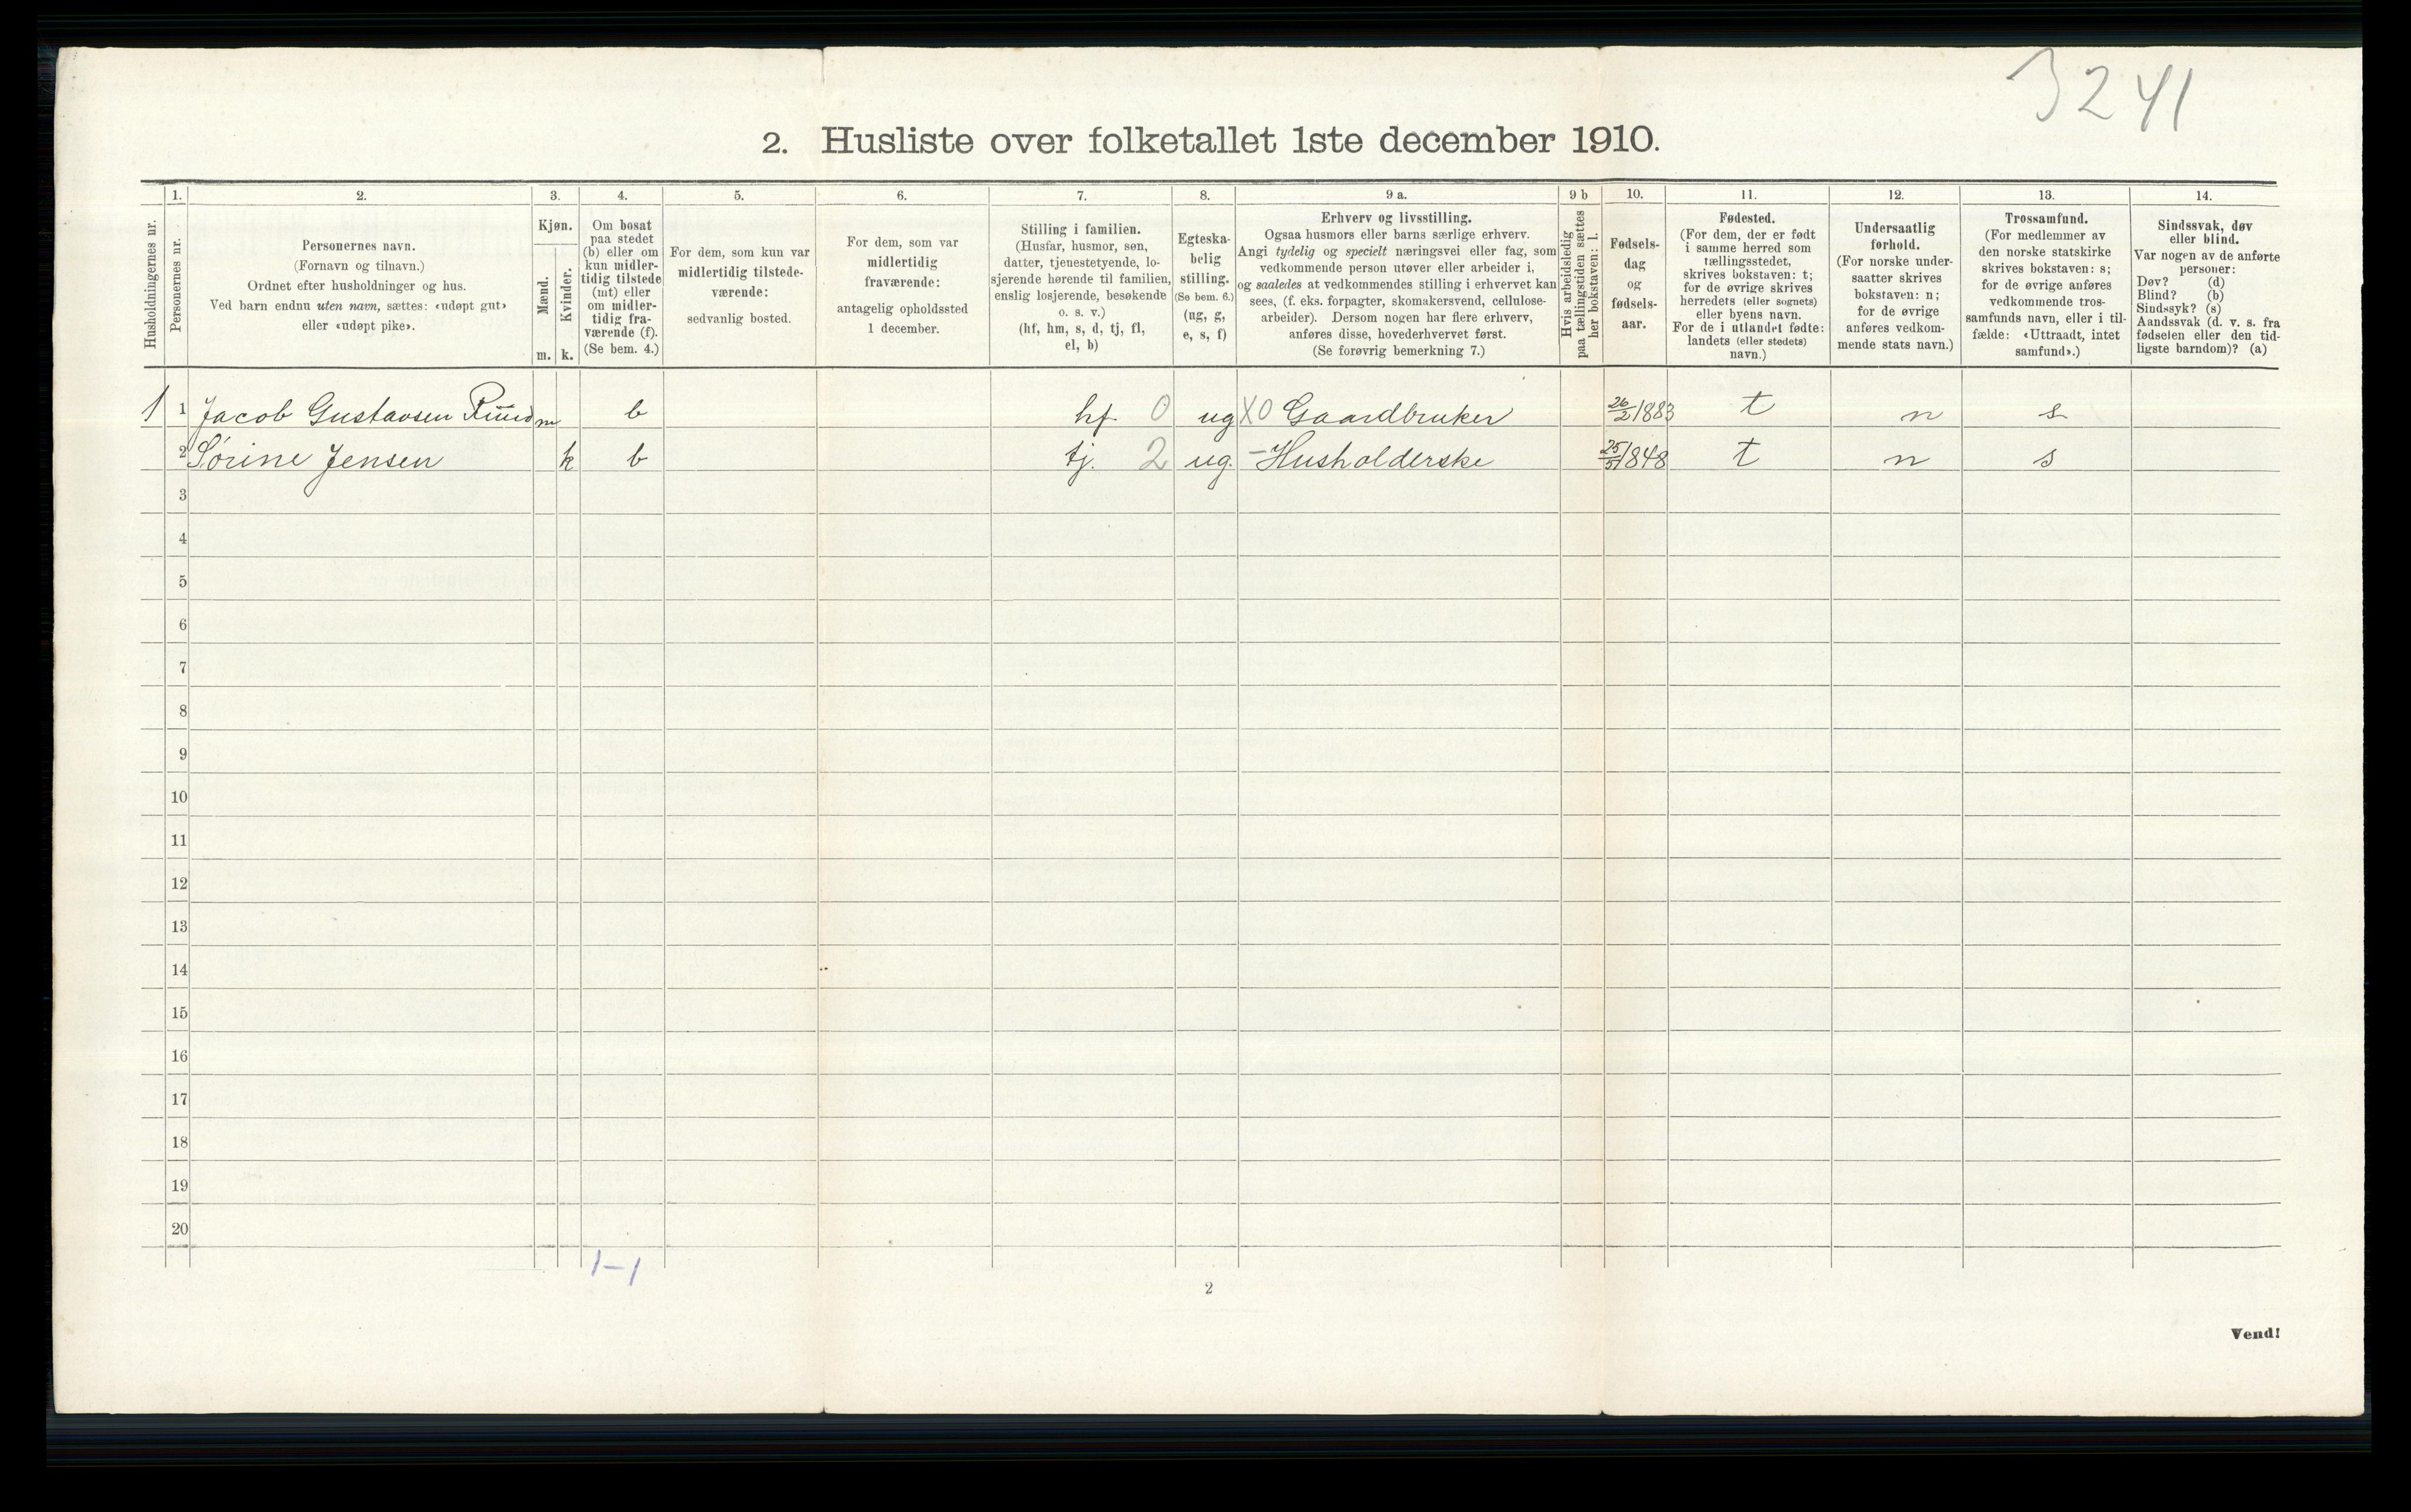 3241
2. Husliste over folketallet 1ste december 1910.
Husholdningernes nr.
1.
Personernes nr.
2.
Personernes navn.
(Fornavn og tilnavn.)
Ordnet efter husholdninger og hus.
Ved barn endnu uten navn, sættes: «udøpt gut»
eller «udøpt pike».
3.
Kjøn.
Mænd.
Kvinder.
m. k.
4.
Om bosat
paa stedet
(b) eller om
kun midler-
tidig tilstede
(mt) eller
om midler-
tidig fra-
værende (f).
(Se bem. 4.)
5.
For dem, som kun var
midlertidig tilstede-
værende:
sedvanlig bosted.
6.
For dem, som var
midlertidig
fraværende:
antagelig opholdssted
1 december.
7.
Stilling i familien.
(Husfar, husmor, søn,
datter, tjenestetyende, lo-
sjerende hørende til familien,
enslig losjerende, besøkende
o. s. v.)
(hf, hm, s, d, tj, fl,
el, b)
8.
Egteska-
belig
stilling.
(Se bem. 6.)
(ug, g,
e, s, f)
9 a.
Erhverv og livsstilling.
Ogsaa husmors eller barns særlige erhverv.
Angi tydelig og specielt næringsvei eller fag, som
vedkommende person utøver eller arbeider i,
og saaledes at vedkommendes stilling i erhvervet kan
sees, (f. eks. forpagter, skomakersvend, cellulose-
arbeider). Dersom nogen har flere erhverv,
anføres disse, hovederhvervet først.
(Se forøvrig bemerkning 7.)
9 b
Hvis arbeidsledig
paa tællingstiden sættes
her bokstaven: l.
10.
Fødsels-
dag
og
fødsels-
aar.
11.
Fødested.
(For dem, der er født
i samme herred som
tællingsstedet,
skrives bokstaven: t;
for de øvrige skrives
herredets (eller sognets)
eller byens navn.
For de i utlandet fødte:
landets (eller stedets)
navn.)
12.
Undersaatlig
forhold.
(For norske under-
saatter skrives
bokstaven: n;
for de øvrige
anføres vedkom-
mende stats navn.)
13.
Trossamfund.
(For medlemmer av
den norske statskirke
skrives bokstaven: s;
for de øvrige anføres
vedkommende tros-
samfunds navn, eller i til-
fælde: «Uttraadt, intet
samfund».)
14.
Sindssvak, døv
eller blind.
Var nogen av de anførte
personer:
Døv? (d)
Blind? (b)
Sindssyk? (s)
Aandssvak (d. v. s. fra
fødselen eller den tid-
ligste barndom)? (a)
1 1 Jacob Gustavsen Ruud m b hf 0 ug X0 Gaardbruker 26/2 1883 t n s
2 Sørine Jensen k b tj. 2 ug. - Husholderske 25/5 1848 t n s
3
4
5
6
7
8
9
10
11
12
13
14
15
16
17
18
19
20
1-1
2
Vend!